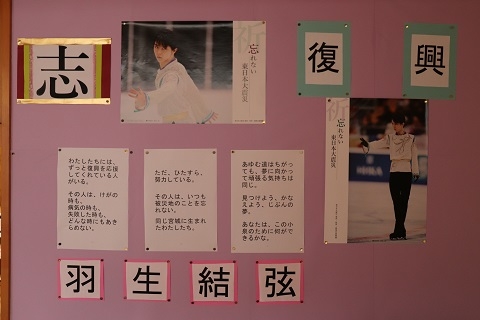 志
祈
忘れない
東日本大震災
復
興
祈
忘れない
東日本大震災
わたしたちには、
ずっと復興を応援
してくれている人
がいる。
その人は、けがの
時も、
病気の時も、
失敗した時も、
どんな時にもあき
らめない。
ただ、ひたすら、
努力している。
その人は、いつも
被災地のことを忘
れない。
同じ宮城に生まれ
たわたしたち。
あゆむ道はちがっ
ても、夢に向かっ
て頑張る気持ちは
同じ。
見つけよう、かな
えよう、じぶんの
夢。
あなたは、この小
泉のために何がで
きるかな。
羽
生
結
弦